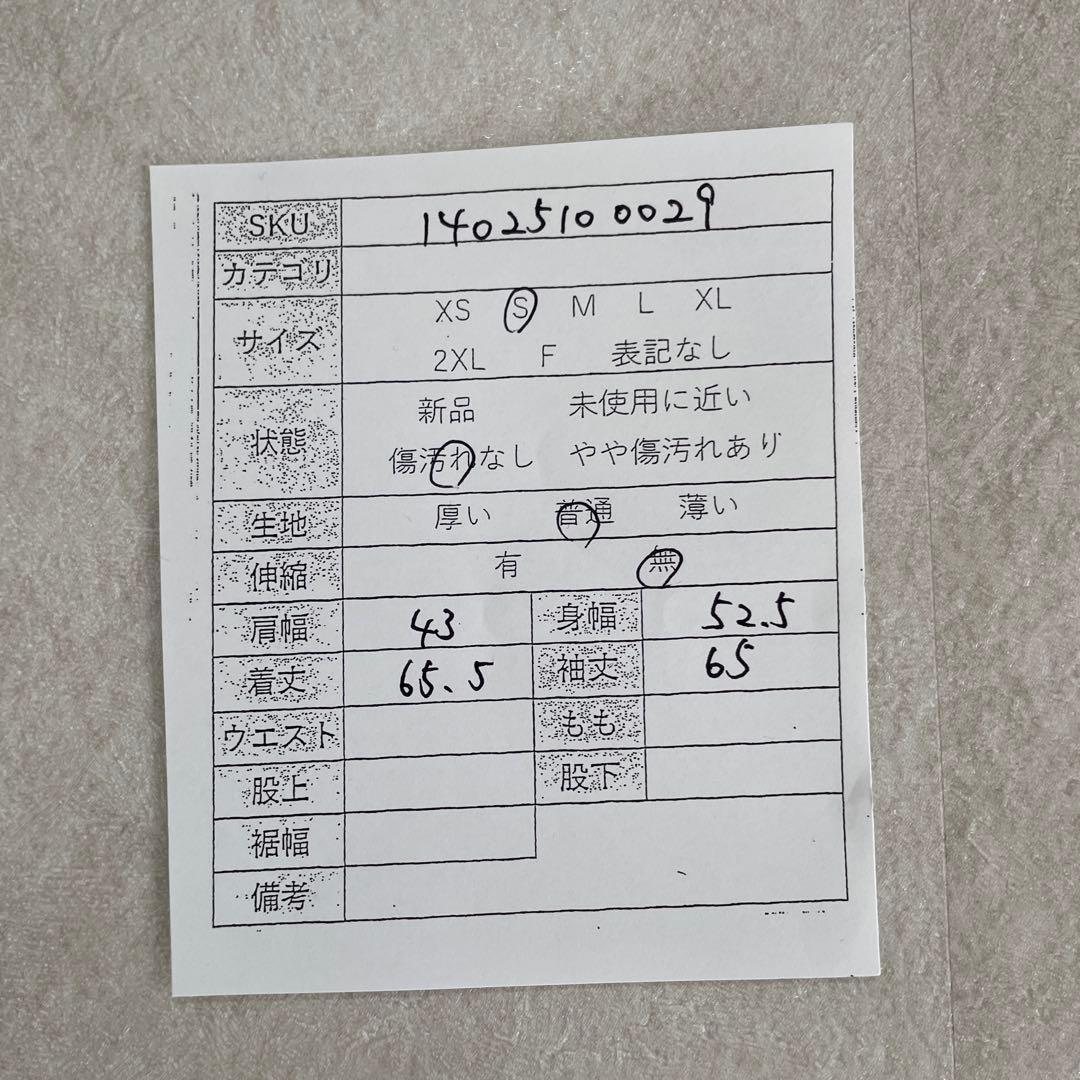 SKU 14025100029
カテゴリ
サイズ XS S M L XL
2XL F 表記なし
状態 新品 未使用に近い
傷汚れなし やや傷汚れあり
生地 厚い 普通 薄い
伸縮 有 無
肩幅 43 身幅 52.5
着丈 65.5 袖丈 65
ウエスト もも
股上 股下
裾幅
備考